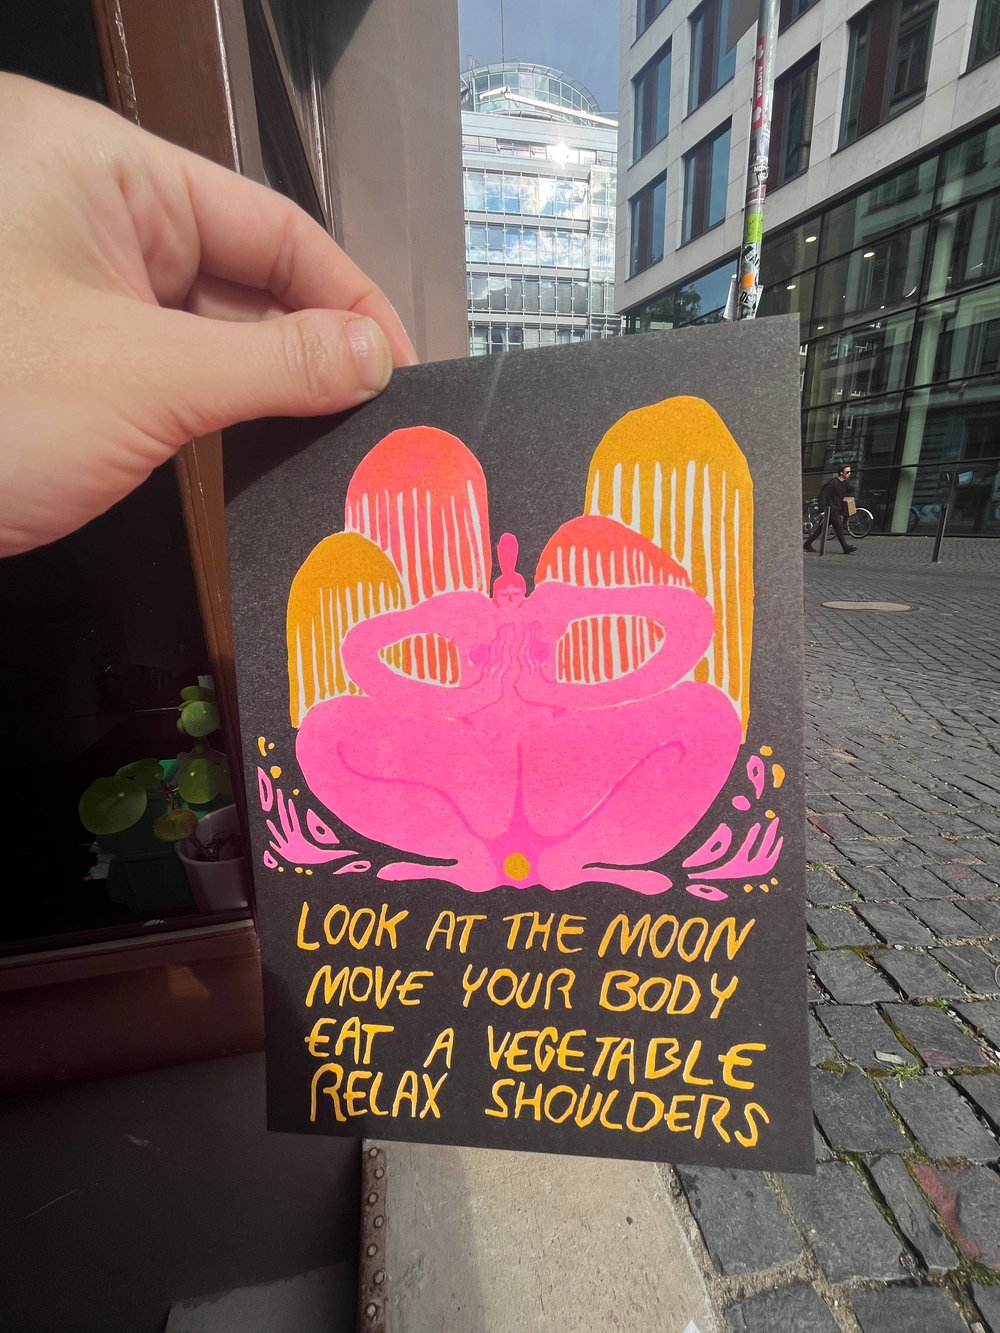 LOOK AT THE MOON
MOVE YOUR BODY
EAT A VEGETABLE
RELAX SHOULDERS